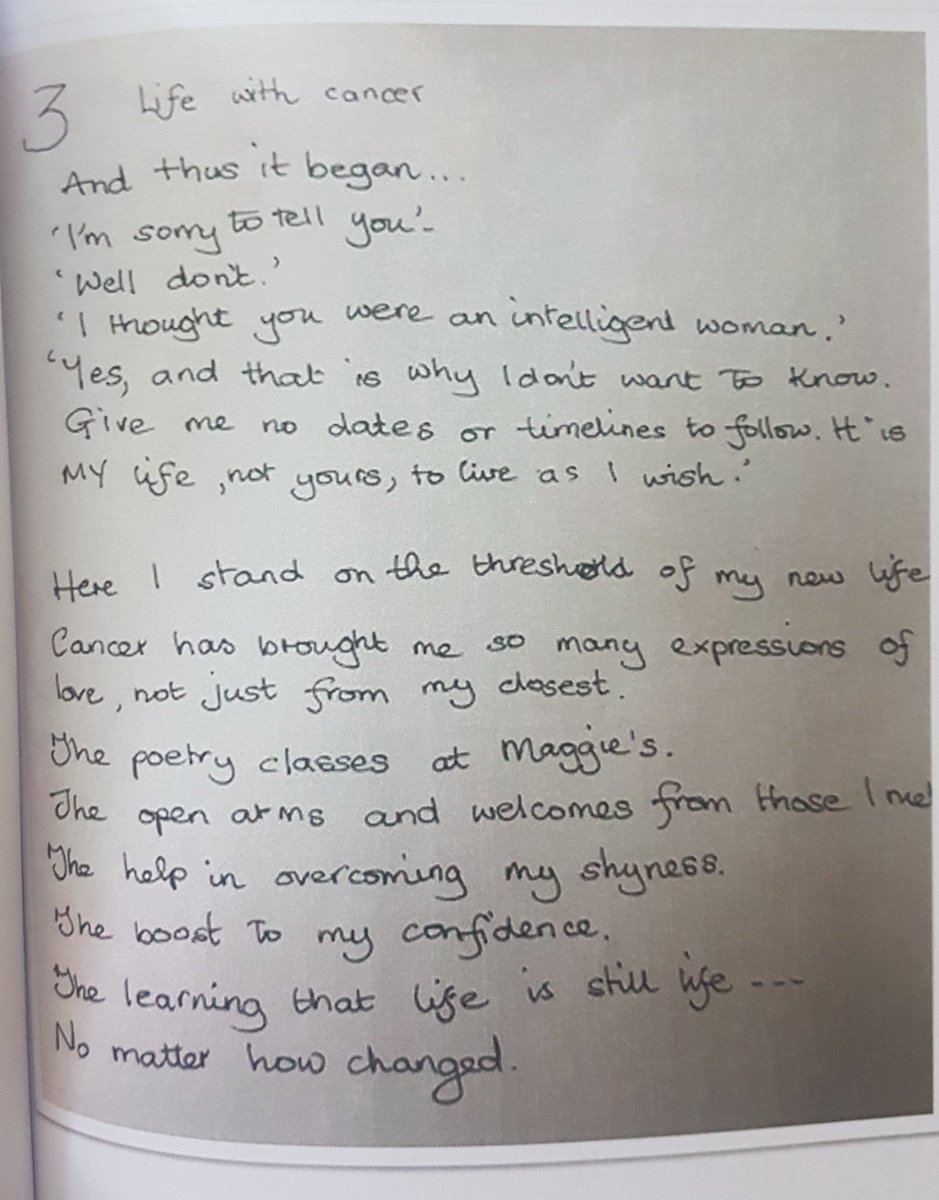 3 Life with cancer
And thus it began...
'I'm sorry to tell you'-
'Well don't.'
'I thought you were an intelligent woman.'
'Yes, and that is why I don't want to know.
Give me no dates or timelines to follow. It is
MY life, not yours, to live as I wish.'
Here I stand on the threshold of my new life
Cancer has brought me so many expressions of
love, not just from my closest.
The poetry classes at Maggie's.
The open arms and welcomes from those I met
The help in overcoming my shyness.
The boost to my confidence.
The learning that life is still life ---
No matter how changed.